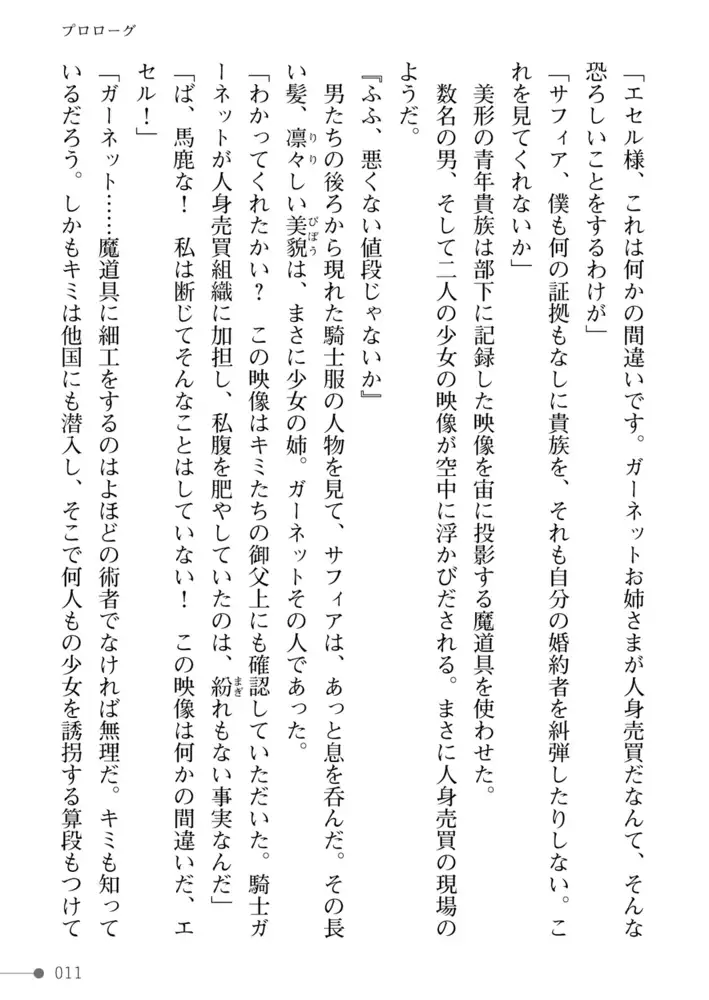 プロローグ
「エセル様、これは何かの間違いです。ガーネットお姉さまが人身売買だなんて、そんな
恐ろしいことをするわけが」
「サフィア、僕も何の証拠もなしに貴族を、それも自分の婚約者を糾弾したりしない。こ
れを見てくれないか」
美形の青年貴族は部下に記録した映像を宙に投影する魔道具を使わせた。
数名の男、そして二人の少女の映像が空中に浮かびだされる。まさに人身売買の現場の
ようだ。
『ふふ、悪くない値段じゃないか』
男たちの後ろから現れた騎士服の人物を見て、サフィアは、あっと息を呑んだ。その長
い髪、凛々しい美貌は、まさに少女の姉。ガーネットその人であった。
「わかってくれたかい？　この映像はキミたちの御父上にも確認していただいた。騎士ガ
ーネットが人身売買組織に加担し、私腹を肥やしていたのは、紛れもない事実なんだ」
「ば、馬鹿な！　私は断じてそんなことはしていない！　この映像は何かの間違いだ、エ
セル！」
「ガーネット……魔道具に細工をするのはよほどの術者でなければ無理だ。キミも知って
いるだろう。しかもキミは他国にも潜入し、そこで何人もの少女を誘拐する算段もつけて
011